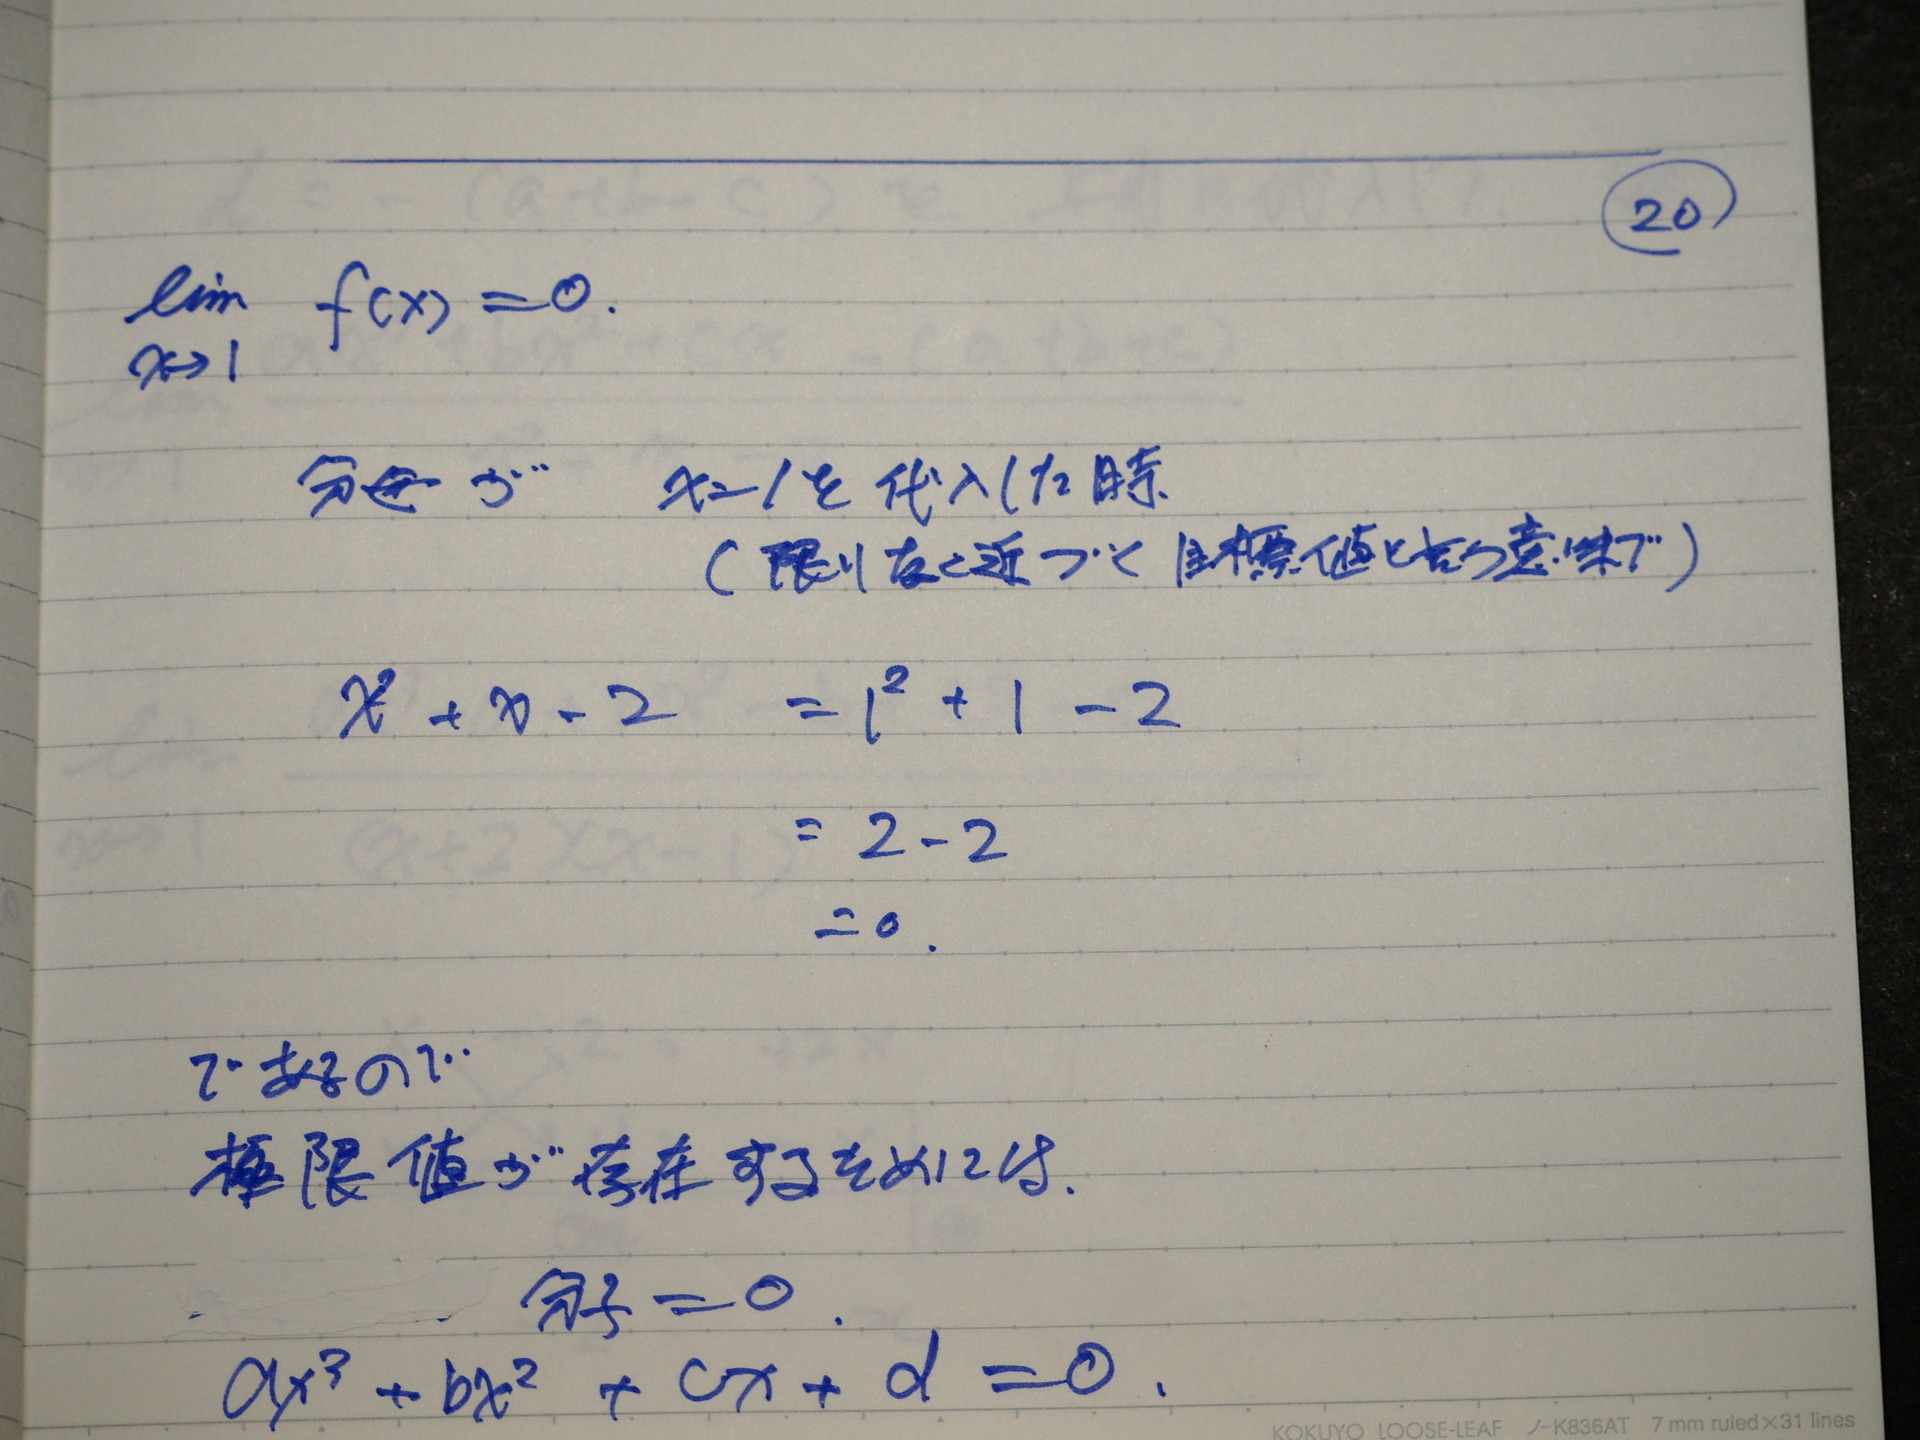 20
lim f(x) = 0.
x→1
分母が x=1を代入した時
(限りなく近づく目標値と言う意味で)
x² + x - 2 = 1² + 1 - 2
= 2 - 2
= 0.
であるので
極限値が存在するためには.
分子 = 0.
ax³ + bx² + cx + d = 0.
KOKUYO LOOSE-LEAF ノ-K836AT 7 mm ruled×31 lines